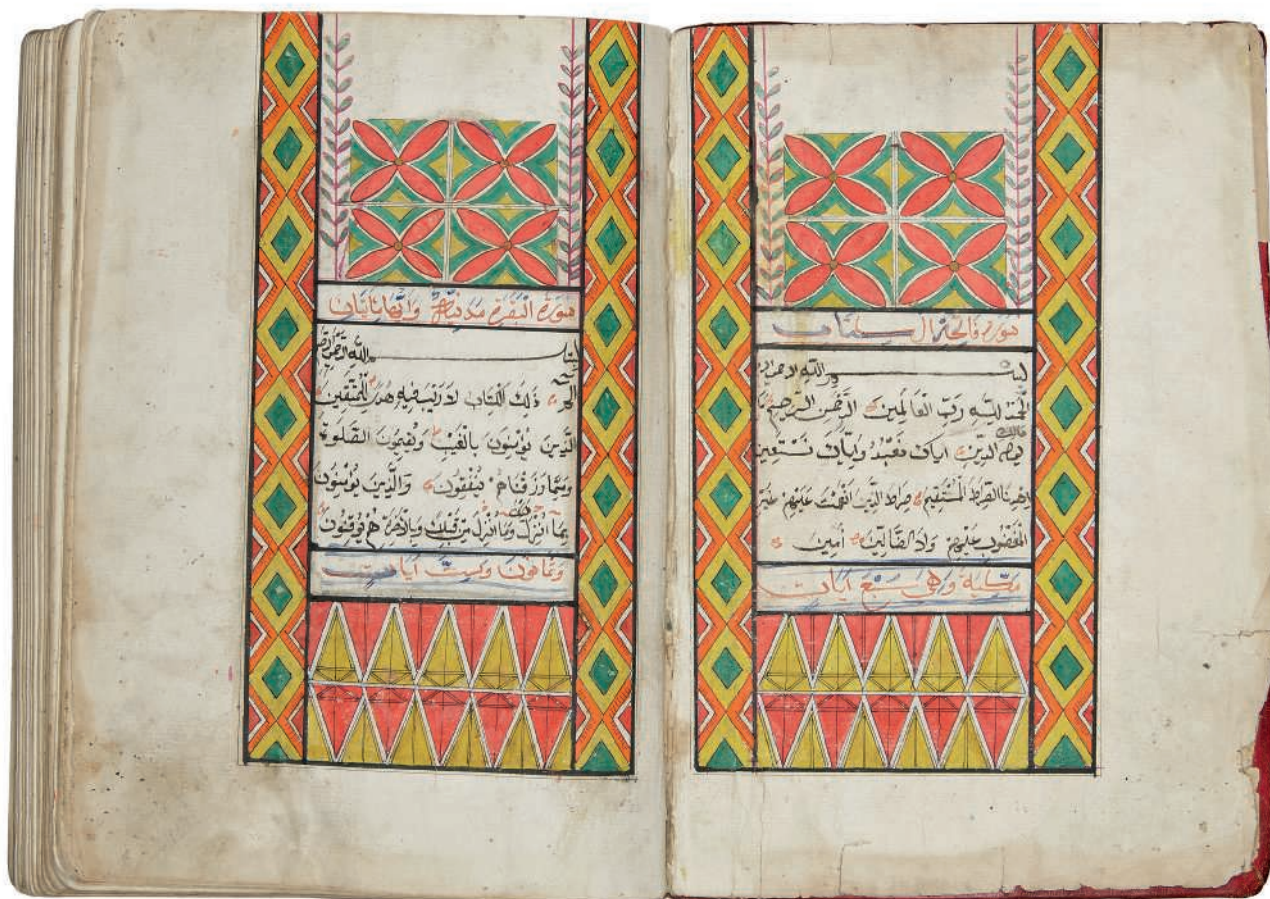 سورة فاتحة ال
بسم الله الرحمن الرحيم
الحمد لله رب العالمين الرحمن الرحيم
مالك
يوم الدين اياك نعبد واياك نستعين
اهدنا الصراط المستقيم صراط الذين انعمت عليهم غير
المغضوب عليهم ولا الضالين امين
مكية وهي سبع ايات
سورة البقرة مدنية وهي مائتان
بسم الله الرحمن الرحيم
الم ذلك الكتاب لا ريب فيه هدى للمتقين
الذين يؤمنون بالغيب ويقيمون الصلوة
ومما رزقناهم ينفقون والذين يؤمنون
بما انزل وما انزل من قبلك وبالاخرة هم يوقنون
وثمانون وست ايات